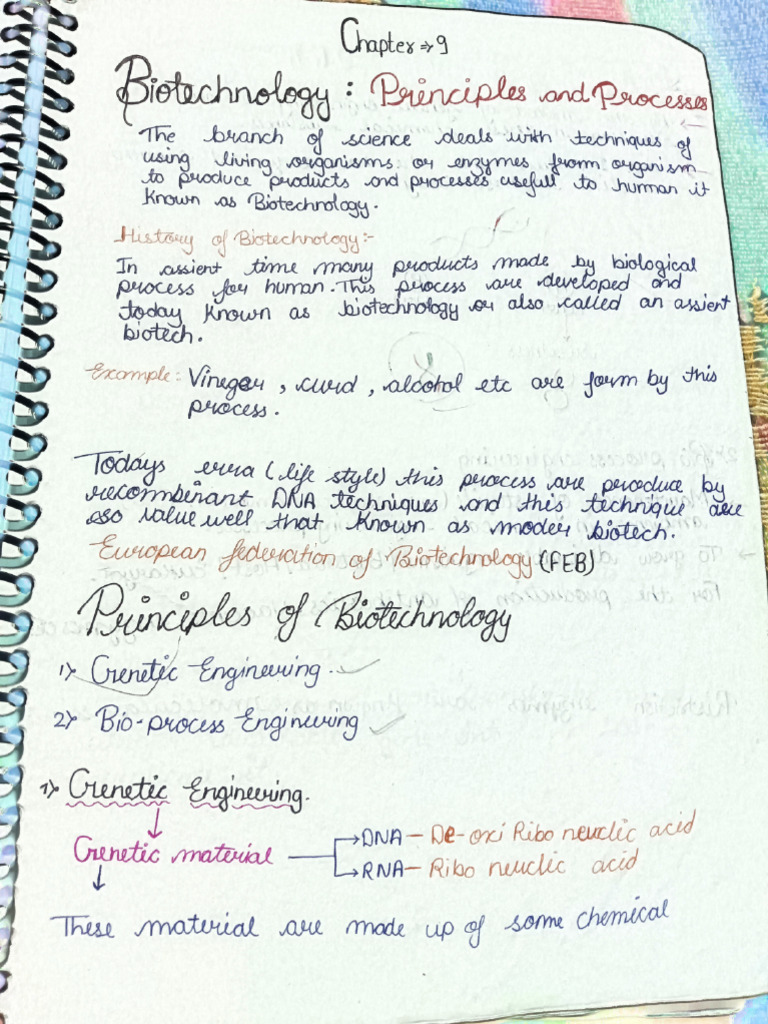 Chapter ⇒ 9
Biotechnology : Principles and Processes
The branch of science deals with techniques of
using living organisms or enzymes from organism
to produce products and processes usefull to human it
Known as Biotechnology.
History of Biotechnology:-
In assient time many products made by biological
process for human. This process are developed and
today known as biotechnology or also called an assient
biotech.
Example: Vinegar, curd, alcohol etc are form by this
process.
Todays erra (life style) this process are produce by
recombinant DNA techniques and this technique are
so value well that known as moder biotech.
European federation of Biotechnology (FEB)
Principles of Biotechnology
1) Genetic Engineering.
2) Bio-process Engineering
1) Genetic Engineering.
↓
Genetic material → DNA – De-oxi Ribo neuclic acid
↓ → RNA – Ribo neuclic acid
These material are made up of some chemical